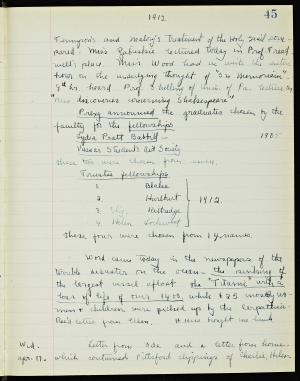 1912
45
Tennyson's and Malory's Treatment of the Holy Grail com-
pared. Miss Patushia lectured today in Prof. Tread-
well's place. Miss Wood had us write the entire
hour on the underlying thought of "In Memoriam".
4th hr. heard Prof. lecture,
"New discoveries concerning Shakespeare"
Prexy announced the graduates chosen by the
faculty for the fellowships
Lydia Pratt Babbitt - 1905
Vassar Students' Aid Society
these two were chosen from
Trustee fellowships
1. Blake
2. Hurlburt
3. Heltzedge
4. Helen Lockwood
1912.
These four were chosen from 14 names.
Word came today in the newspapers of the
worlds disaster on the ocean - the sinking of
the largest vessel afloat the "Titanic" with a
loss of life of over 1400, while 825 mostly wo-
men & children were picked up by the Carpathia.
Rec'd letter from Ellen.
Wed. Letter from Ida and a letter from home
apr. 17. which contained Pittsford clippings of Charlie, Helen